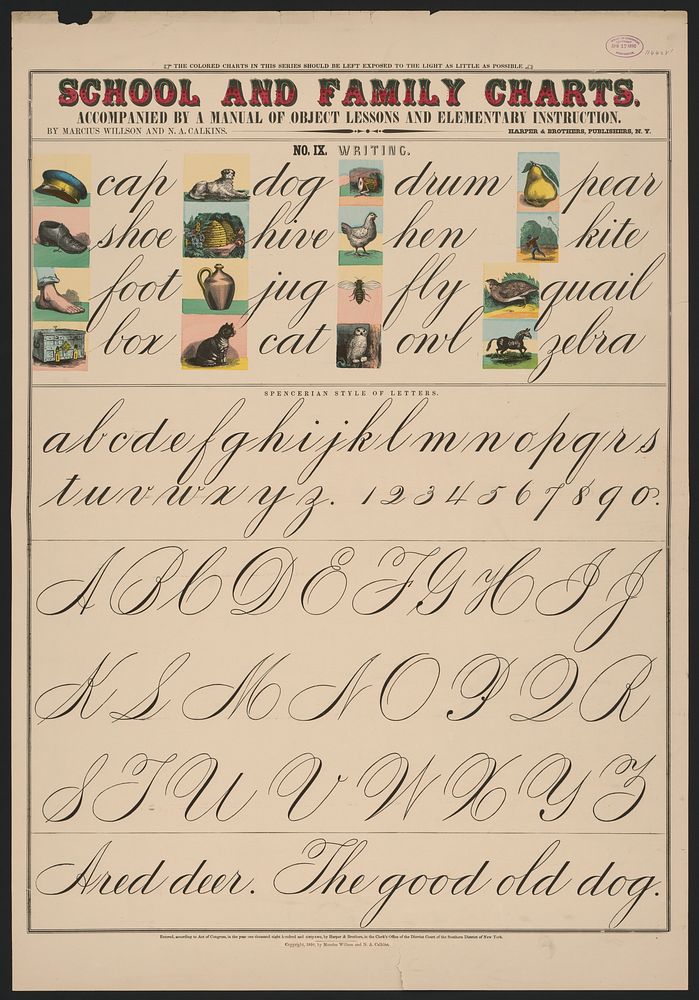 THE COLORED CHARTS IN THIS SERIES SHOULD BE LEFT EXPOSED TO THE LIGHT AS LITTLE AS POSSIBLE
SCHOOL AND FAMILY CHARTS.
ACCOMPANIED BY A MANUAL OF OBJECT LESSONS AND ELEMENTARY INSTRUCTION.
BY MARCIUS WILLSON AND N. A. CALKINS. HARPER & BROTHERS, PUBLISHERS, N. Y.
NO. IX. WRITING.
cap dog drum pear
shoe hive hen kite
foot jug fly quail
box cat owl zebra
SPENCERIAN STYLE OF LETTERS.
a b c d e f g h i j k l m n o p q r s
t u v w x y z. 1 2 3 4 5 6 7 8 9 0.
A B C D E F G H I J
K L M N O P Q R
S T U V W X Y Z
A red deer. The good old dog.
Entered, according to Act of Congress, in the year one thousand eight hundred and sixty-two, by Harper & Brothers, in the Clerk's Office of the District Court of the Southern District of New York.
Copyright, 1890, by Marcius Willson and N. A. Calkins.